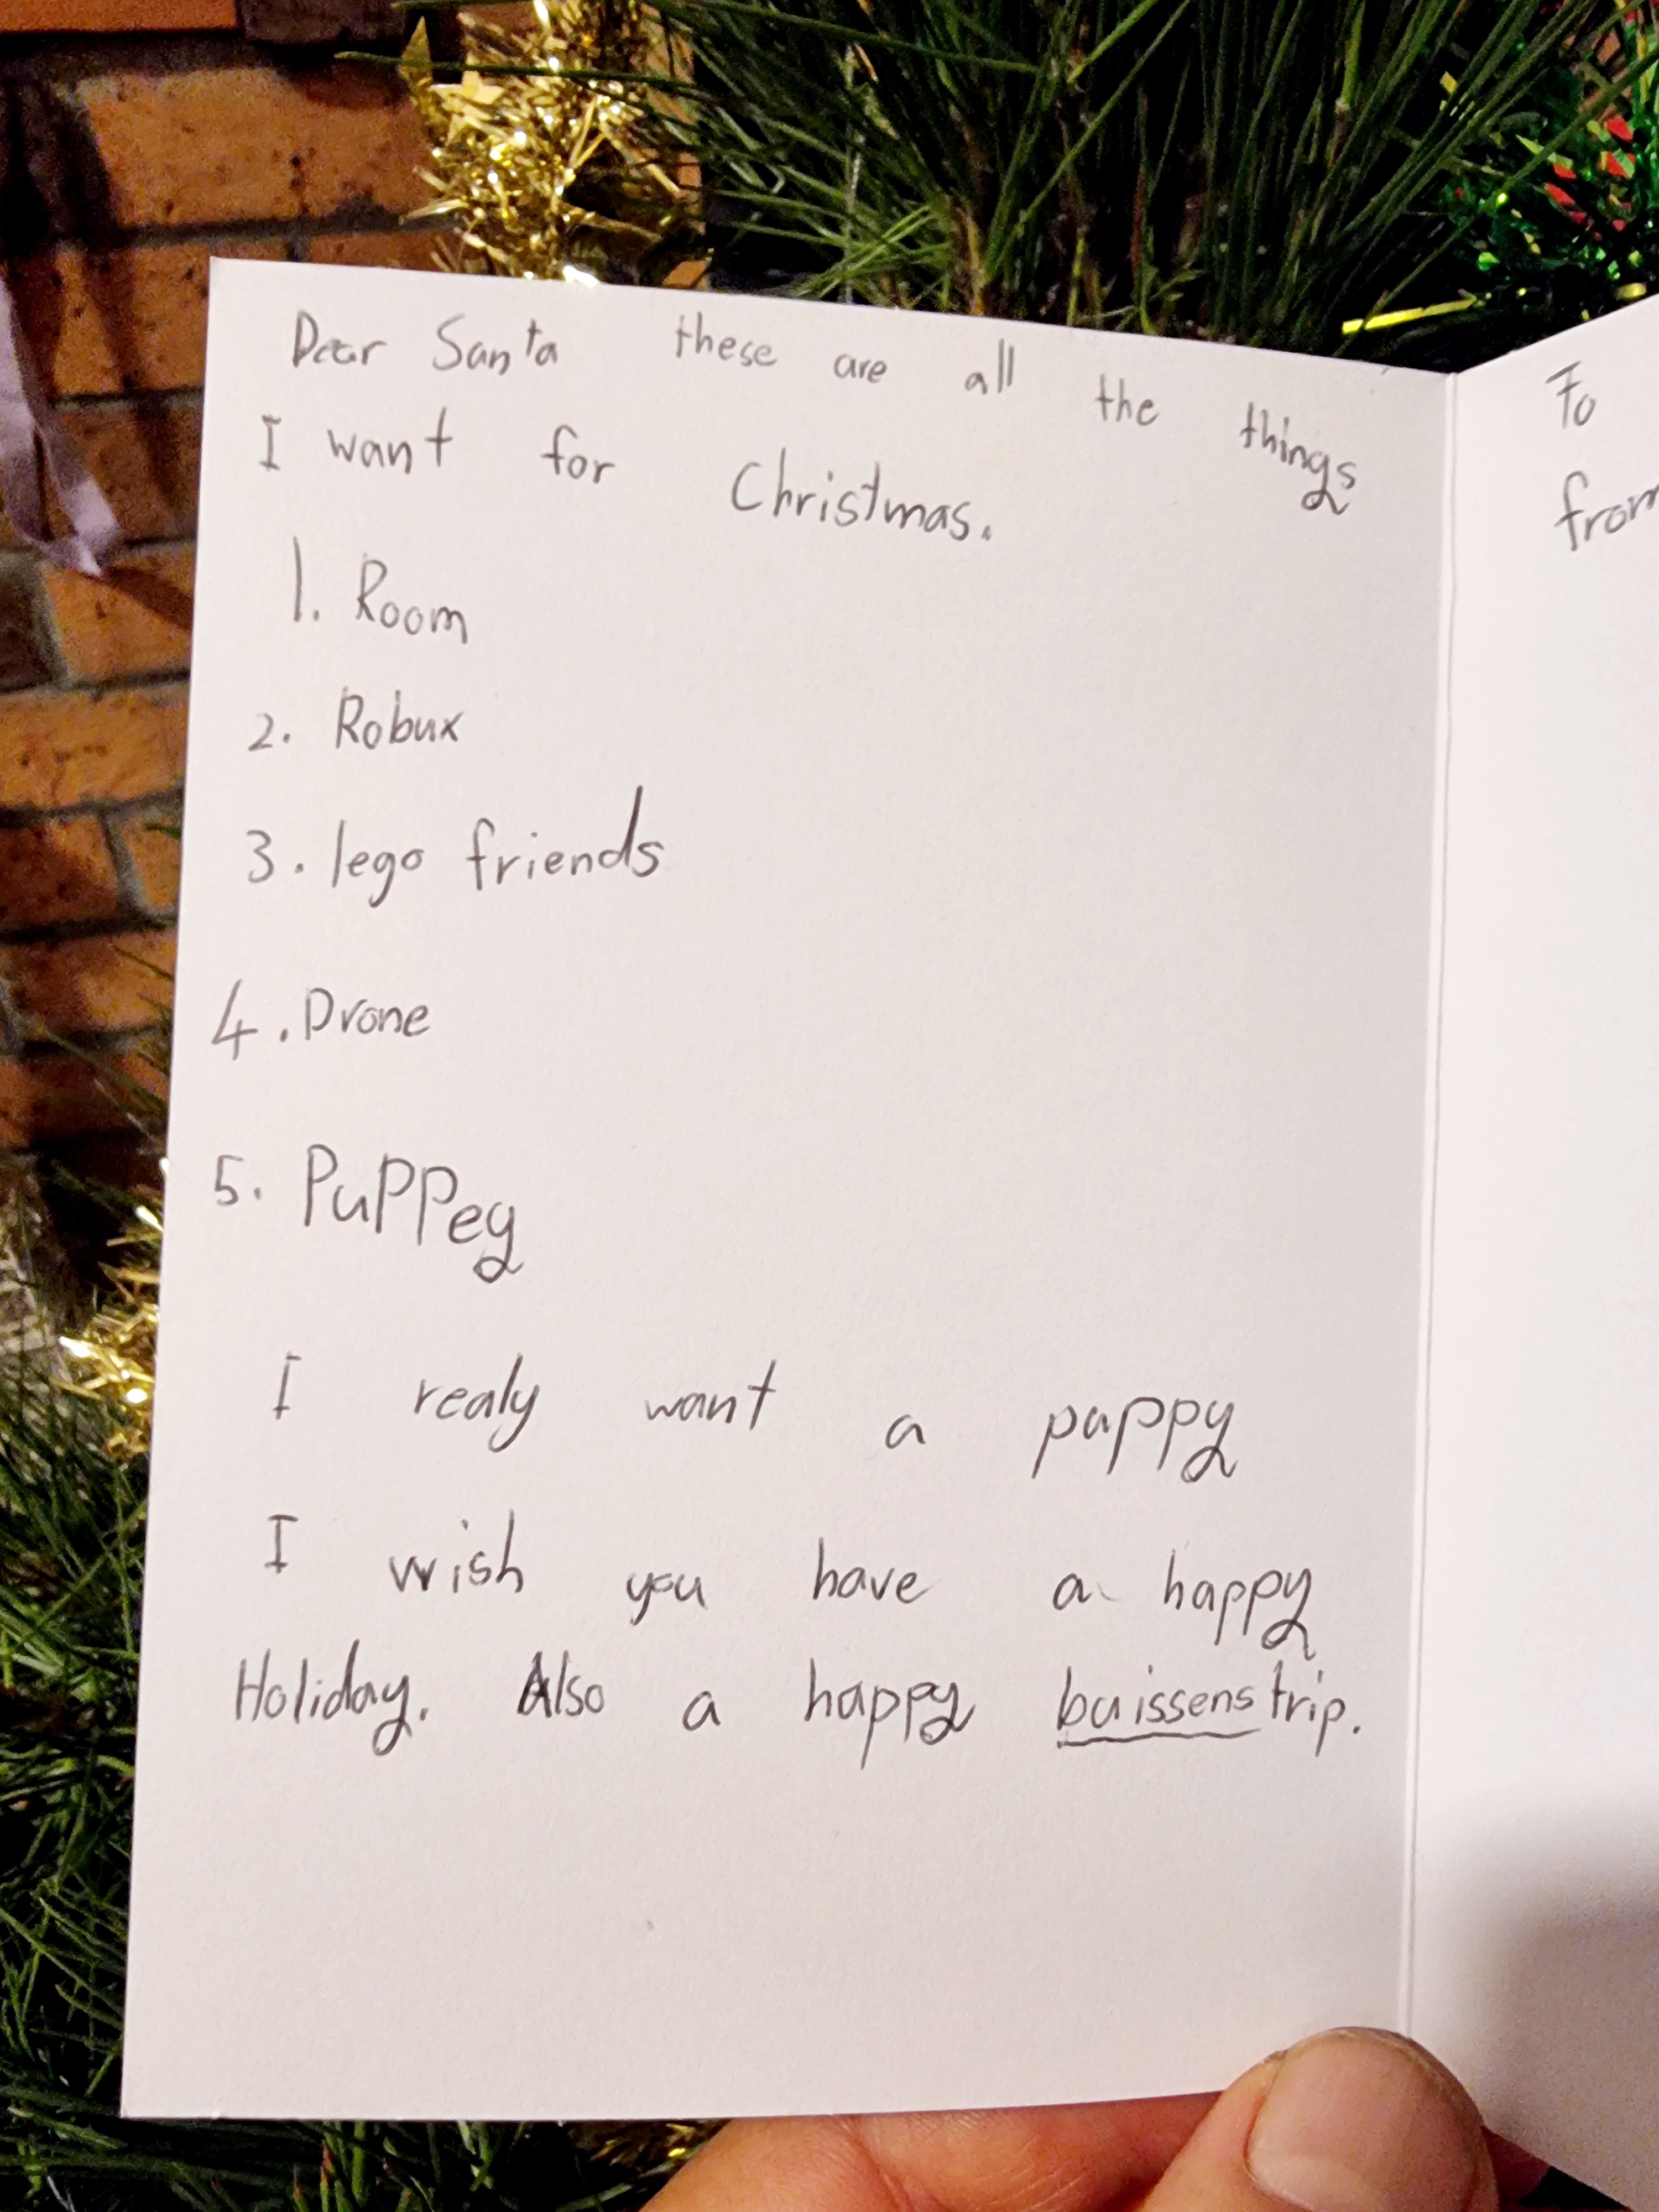 Dear Santa these are all the things
I want for Christmas.
1. Room
2. Robux
3. lego friends
4. Drone
5. PuPPey
I realy want a puppy
I wish you have a happy
Holiday. Also a happy buissens trip.
To
from